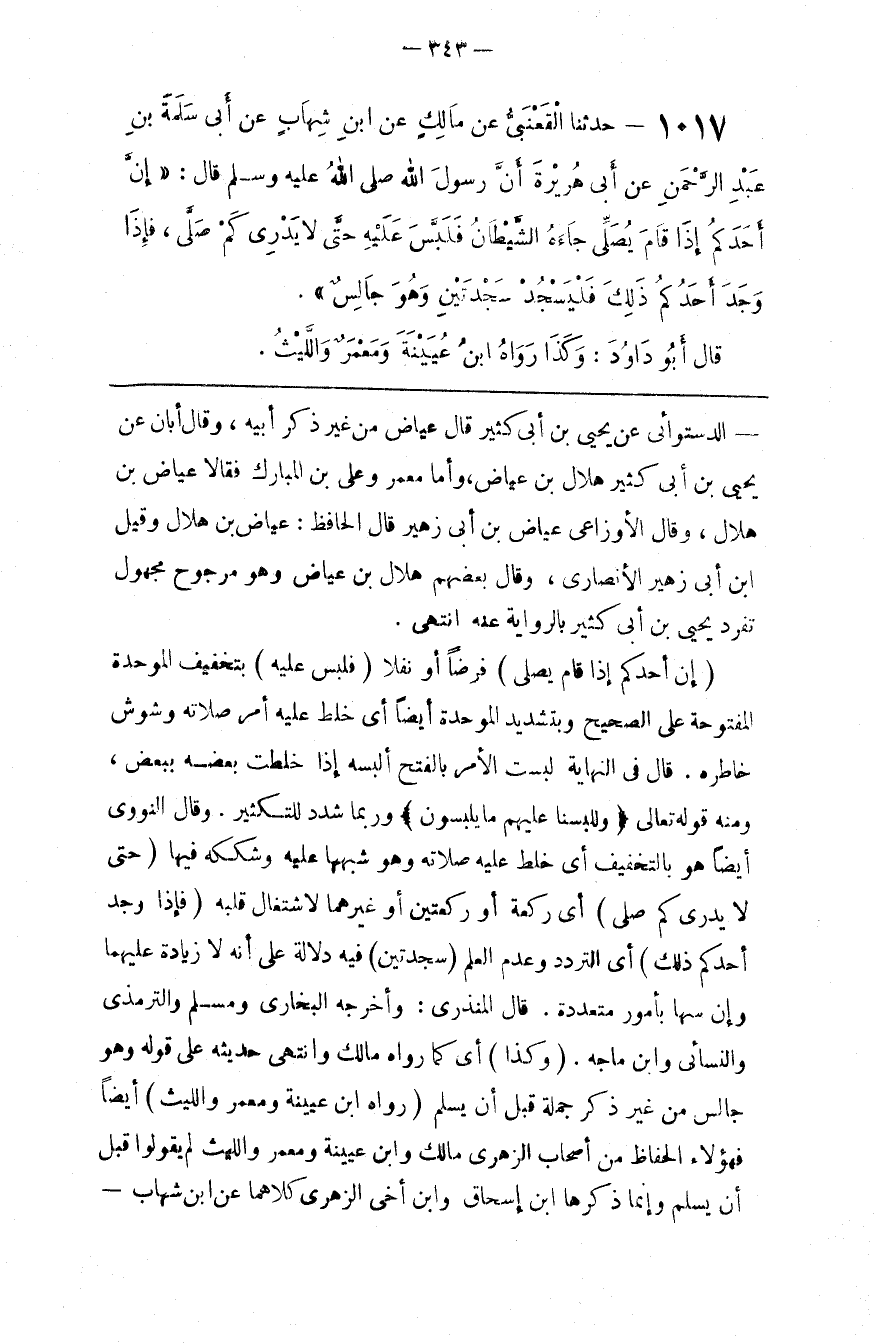 — ٣٤٣ —
١٠١٧ — حدثنا الْقَعْنَبِىُّ عن مَالِكٍ عن ابنِ شِهَابٍ عن أَبى سَلَمَةَ بنِ
عَبْدِ الرَّحْمَنِ عن أَبى هُرِيْرَةَ أَنَّ رسولَ الله صلى اللهُ عليه وسلم قال : « إنَّ
أَحَدَكُمُ إذَا قَامَ يُصَلِّى جاءَهُ الشَّيْطَانُ فَلَبَّسَ عَلَيْهِ حتَّى لا يَدْرِى كَمْ صَلَّى ، فإِذَا
وَجَدَ أَحَدُكُم ذَلِكَ فَلْيَسْجُدْ سَجْدَتَيْنِ وَهُوَ جَالِسٌ » .
قال أَبُو دَاوُدَ : وَكَذَا رَوَاهُ ابنُ عُيَيْنَةَ وَمَعْمَرٌ وَاللَّيْثُ .
— الدستوائى عن يحيى بن أبى كثير قال عياض من غير ذكر أبيه ، وقال أبان عن
يحيى بن أبى كثير هلال بن عياض ، وأما معمر وعلى بن المبارك فقالا عياض بن
هلال ، وقال الأوزاعى عياض بن أبى زهير قال الحافظ : عياض بن هلال وقيل
ابن أبى زهير الأنصارى ، وقال بعضهم هلال بن عياض وهو مرجوح مجهول
تفرد يحيى بن أبى كثير بالرواية عنه انتهى .
( إن أحدكم إذا قام يصلى ) فرضاً أو نفلا ( فلبس عليه ) بتخفيف الموحدة
المفتوحة على الصحيح وبتشديد الموحدة أيضاً أى خلط عليه أمر صلاته وشوش
خاطره . قال فى النهاية لبست الأمر بالفتح ألبسه إذا خلطت بعضه ببعض ،
ومنه قوله تعالى ﴿ وللبسنا عليهم ما يلبسون ﴾ وربما شدد للتكثير . وقال النووى
أيضاً هو بالتخفيف أى خلط عليه صلاته وهو شبهها عليه وشككه فيها ( حتى
لا يدرى كم صلى ) أى ركعة أو ركعتين أو غيرهما لاشتغال قلبه ( فإذا وجد
أحدكم ذلك ) أى التردد وعدم العلم (سجدتين) فيه دلالة على أنه لا زيادة عليهما
وإن سها بأمور متعددة . قال المنذرى : وأخرجه البخارى ومسلم والترمذى
والنسائى وابن ماجه . ( وكذا ) أى كما رواه مالك وانتهى حديثه على قوله وهو
جالس من غير ذكر جملة قبل أن يسلم ( رواه ابن عيينة ومعمر والليث ) أيضاً
فهؤلاء الحفاظ من أصحاب الزهرى مالك وابن عيينة ومعمر والليث لم يقولوا قبل
أن يسلم وإنما ذكرها ابن إسحاق وابن أخى الزهرى كلاهما عن ابن شهاب —